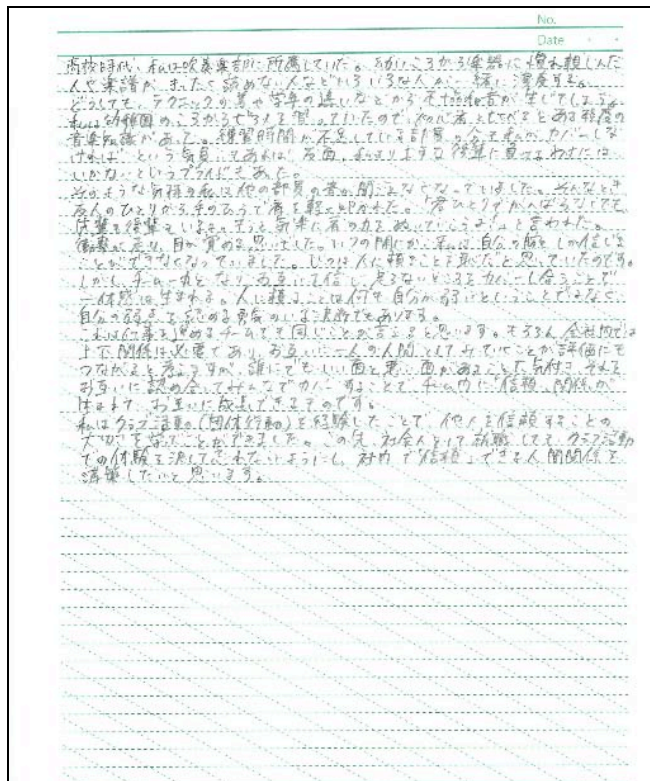 No.
Date
高校時代、私は吹奏楽部に所属していた。 ころから楽器に慣れ親しんだ
人や楽譜がまったく読めない人などいろいろな人が一緒に演奏する。
どうしても、テクニックの差や学年の違いなどから不協和音が生じてしまう。
私は幼稚園のころから を習っていたので、初心者とくらべるとある程度の
音楽知識があった。練習時間が不足している部員の分を私がカバーしな
ければという気負いもあれば、反面、 後輩に負けるわけには
いかないというプライドもあった。
そのような気持の私は他の部員の音が聞こえなくなっていました。そんなとき
友人のひとりから手のひらで肩を軽く叩かれた。「君ひとりでがんばらなくても
先輩も後輩もいるさ。もっと気楽に肩の力をぬいていこうよ」と言われた。
衝撃が走り、目が覚める思いでした。いつの間にか、私は自分の腕しか信じる
ことができなくなっていました。じつは人に頼ることを恥だと思っていたのです。
しかし、チーム一丸となり、お互いを信じ、足りないところをカバーし合うことで
一体感は生まれる。人に頼ることは何も自分が弱いということではなく
自分の弱点を認める勇気のいる決断でもあります。
これは仕事を進めるチームでも同じことが言えると思います。もちろん、会社内では
上下関係は必要であり、お互いに一人の人間としてみていくことが評価にも
つながると考えますが、誰にでもいい面と悪い面があることに気付き、それを
お互いに認め合ってみんなでカバーすることで、チーム内に「信頼」関係が
はぐくまれ、お互いに成長できるものです。
私はクラブ活動(団体行動)を経験したことで、他人を信頼することの
大切さを学ぶことができました。この先、社会人として就職しても、クラブ活動
での体験を決して忘れないようにし、社内で「信頼」できる人間関係を
構築したいと思います。